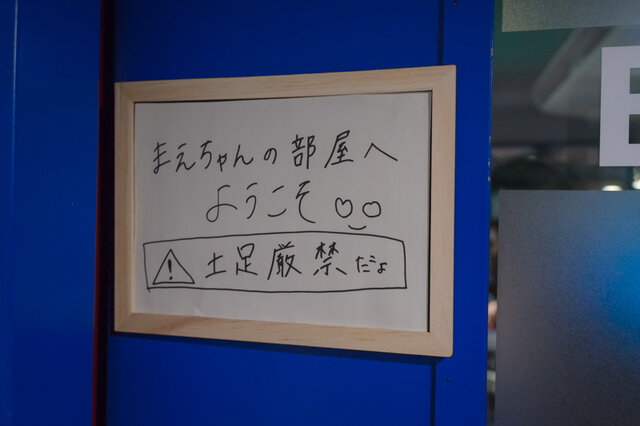 まえちゃんの部屋へ
ようこそ
土足厳禁だよ